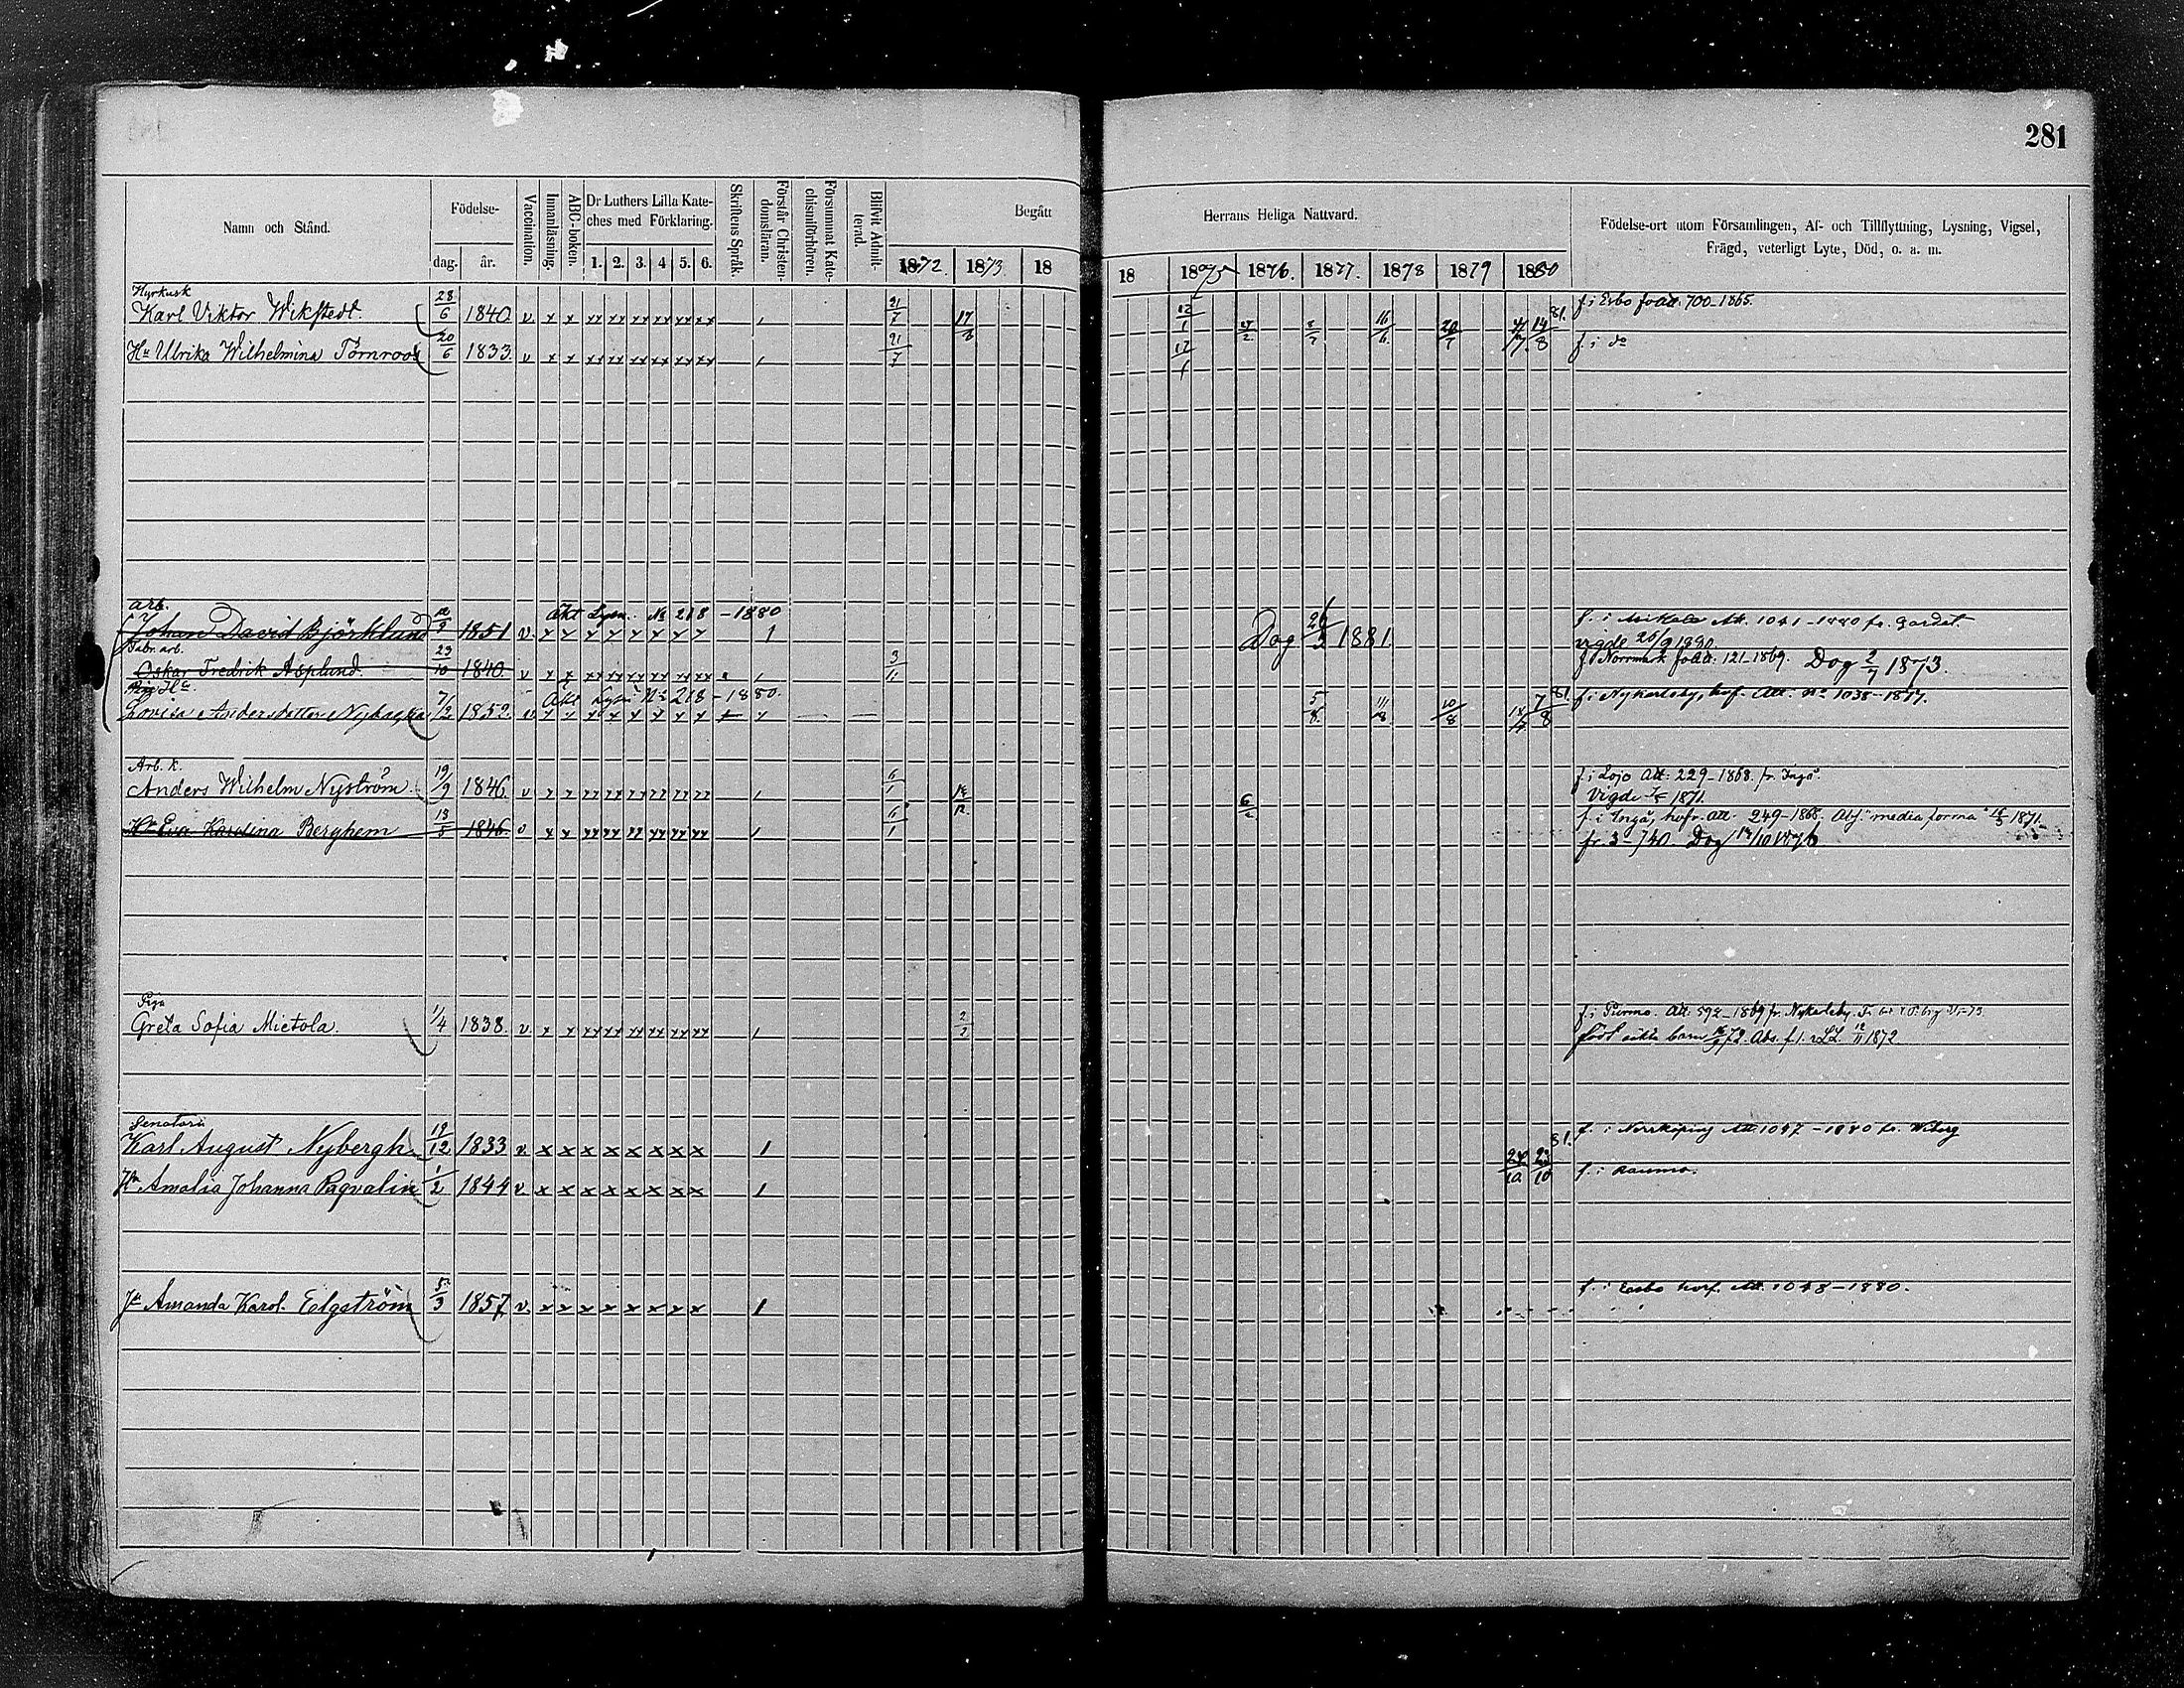 281
Namn och Stånd.
Födelse-
dag.
år.
Vaccination.
Innanläsning.
ABC-boken.
Dr Luthers Lilla Kate-
ches med Förklaring.
1. 2. 3. 4 5. 6.
Skriftens Språk.
Förstår Christen-
domsläran.
Försummat Kate-
chismiförhören.
Blifvit Admit-
terad.
Begått
1872. 1873 18
Herrans Heliga Nattvard.
18 1875 1876. 1877. 1878 1879 1880
Födelse-ort utom Församlingen, Af- och Tillflyttning, Lysning, Vigsel,
Frägd, veterligt Lyte, Död, o. a. m.
Hyrkusk
Karl Viktor Wikstedt. 28/6 1840. v 21/7 17/6 12/1 16/6 14/8 81. f. i Esbo 700-1865.
Hu Ulrika Wilhelmina Törnroos 20/6 1833. v 21/7 12/1 f. i do
arb.
Johan David Björklund 1851 v Äkt Lysn. No 218 - 1880 Dog 26/2 1881. Att. 1041-1880 fr. gardet.
vigde 26/9 1880.
Fabr. arb.
Oskar Fredrik Asplund. 29/10 1840. v 3/11 f. i Norrmark 121-1869. Dog 2/7 1873.
Hu
Lovisa Andersdotter 7/2 1852. Äkt Lysn No 218 - 1880. 5/8 11/8 10/8 7/8 81 f. i Nykarleby, Att. No 1038-1877.
Arb. k.
Anders Wilhelm Nyström 19/9 1846. v 6/1 f. i Lojo Att: 229-1868. fr. Ingå.
Vigde 1871.
Hu Eva Karolina Berghem 13/5 1846. v 6/1 6/2 f. i Ingå, Att. 249-1868. Abs. "media forma" 1871.
fr. 3-740. Dog 1876
Piga
Greta Sofia Mietola. 1/4 1838. v 2/2 f. i Purmo. Att. 592-1869 fr. Nykarleby.
född oäkta barn 72. Abs. 12/11 1872
Karl August Nybergh 19/12 1833 v. 24/10 23/10 81. f. i Norrköping Att 1047-1880 fr. Wiborg
Hu Amalia Johanna Pagvalin 1/2 1844 v. f. i Raumo.
Jn Amanda Karol. Edgström 5/3 1857. v. f. i Esbo Att. 1048-1880.